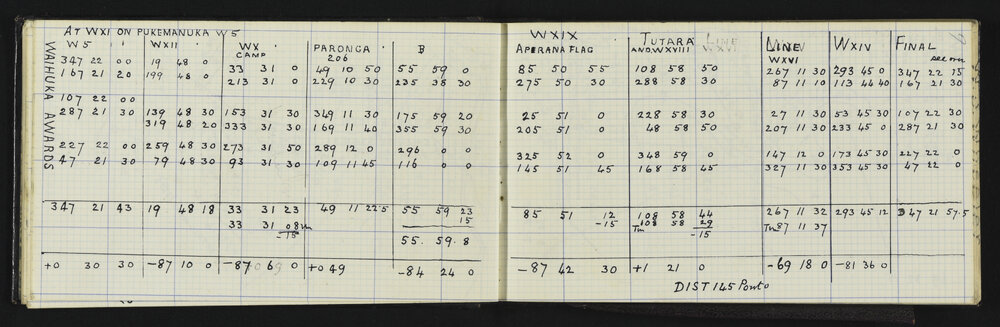 AT WXI ON PUKEMANUKA W5
W5 WXII WX CAMP PARONGA 206 B
WAIHUKA AWARDS
347 22 00 19 48 0 33 31 0 49 10 50 55 59 0
167 21 20 199 48 0 213 31 0 229 10 30 235 58 30
107 22 00
287 21 30 139 48 30 153 31 30 349 11 30 175 59 20
319 48 20 333 31 30 169 11 40 355 59 30
227 22 00 259 48 30 273 31 50 289 12 0 296 0 0
47 21 30 79 48 30 93 31 30 109 11 45 116 0 0
347 21 43 19 48 18 33 31 23 49 11 22.5 55 59 23
15
33 31 08
-15
55. 59. 8
+0 30 30 -87 10 0 -87 0 +0 49 -84 24 0
WXIX TUTARA LINE
APERANA FLAG AND WXVIII WXVI LINE WXVI WXIV FINAL
85 50 55 108 58 50 267 11 30 293 45 0 347 22 15
275 50 30 288 58 30 87 11 10 113 44 40 167 21 30
25 51 0 228 58 30 27 11 30 53 45 30 107 22 30
205 51 0 48 58 50 207 11 30 233 45 0 287 21 30
325 52 0 348 59 0 147 12 0 173 45 30 227 22 0
145 51 45 168 58 45 327 11 30 353 45 30 47 22 0
85 51 12 108 58 44 267 11 32 293 45 12 347 21 57.5
-15 Tm 108 58 29 Tm 87 11 37
-15
-87 42 30 +1 21 0 -69 18 0 -81 36 0
DIST 145